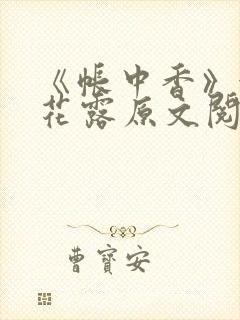 《帐中香》
花露原文阅
曹寳安